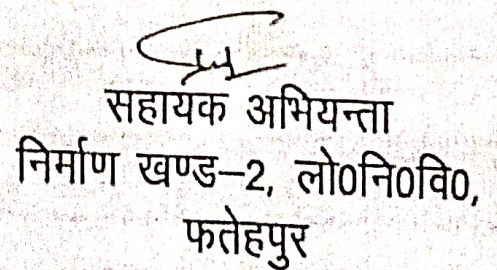 सहायक अभियन्ता
निर्माण खण्ड-2, लो0नि0वि0,
फतेहपुर